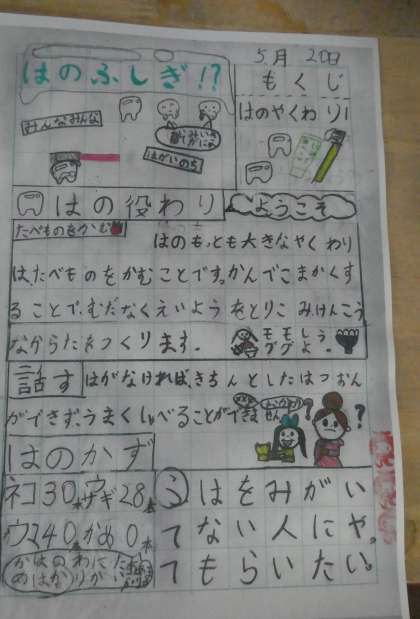 5月 20日
はのふしぎ!?
もくじ
はのやくわり1
みんなみんな
はがいのち
はの役わり
ようこそ
たべものをかむ
はのもっとも大きなやくわり
は、たべものをかむことです。かんでこまかくす
ることで、むだなくえいようをとりこみ、けんこう
なからだをつくります。
モグモグしよう。
話す
はがなければ、きちんとしたはつおん
ができず、うまくしゃべることができま
せん
はのかず
ネコ30本ウサギ28本
ウマ40本かめ0本
はをみがい
てない人にや
てもらいたい。